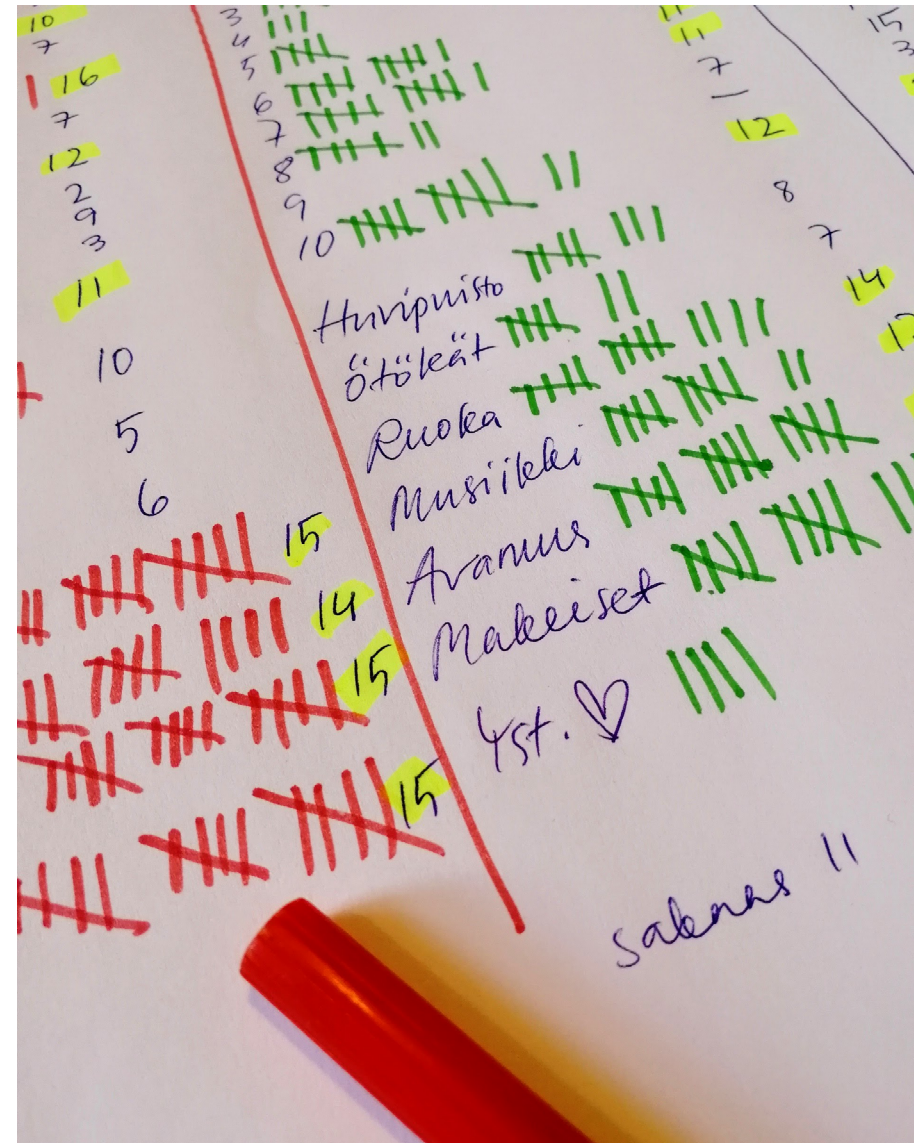 10
7
16
7
12
2
9
3
11
10
5
6
15
14
15
15
3
4
5
6
7
8
9
10
Huvipuisto
Ötökät
Ruoka
Musiikki
Avaruus
Makeiset
Yst. ♡
11
7
1
12
8
7
14
15
saknas 11